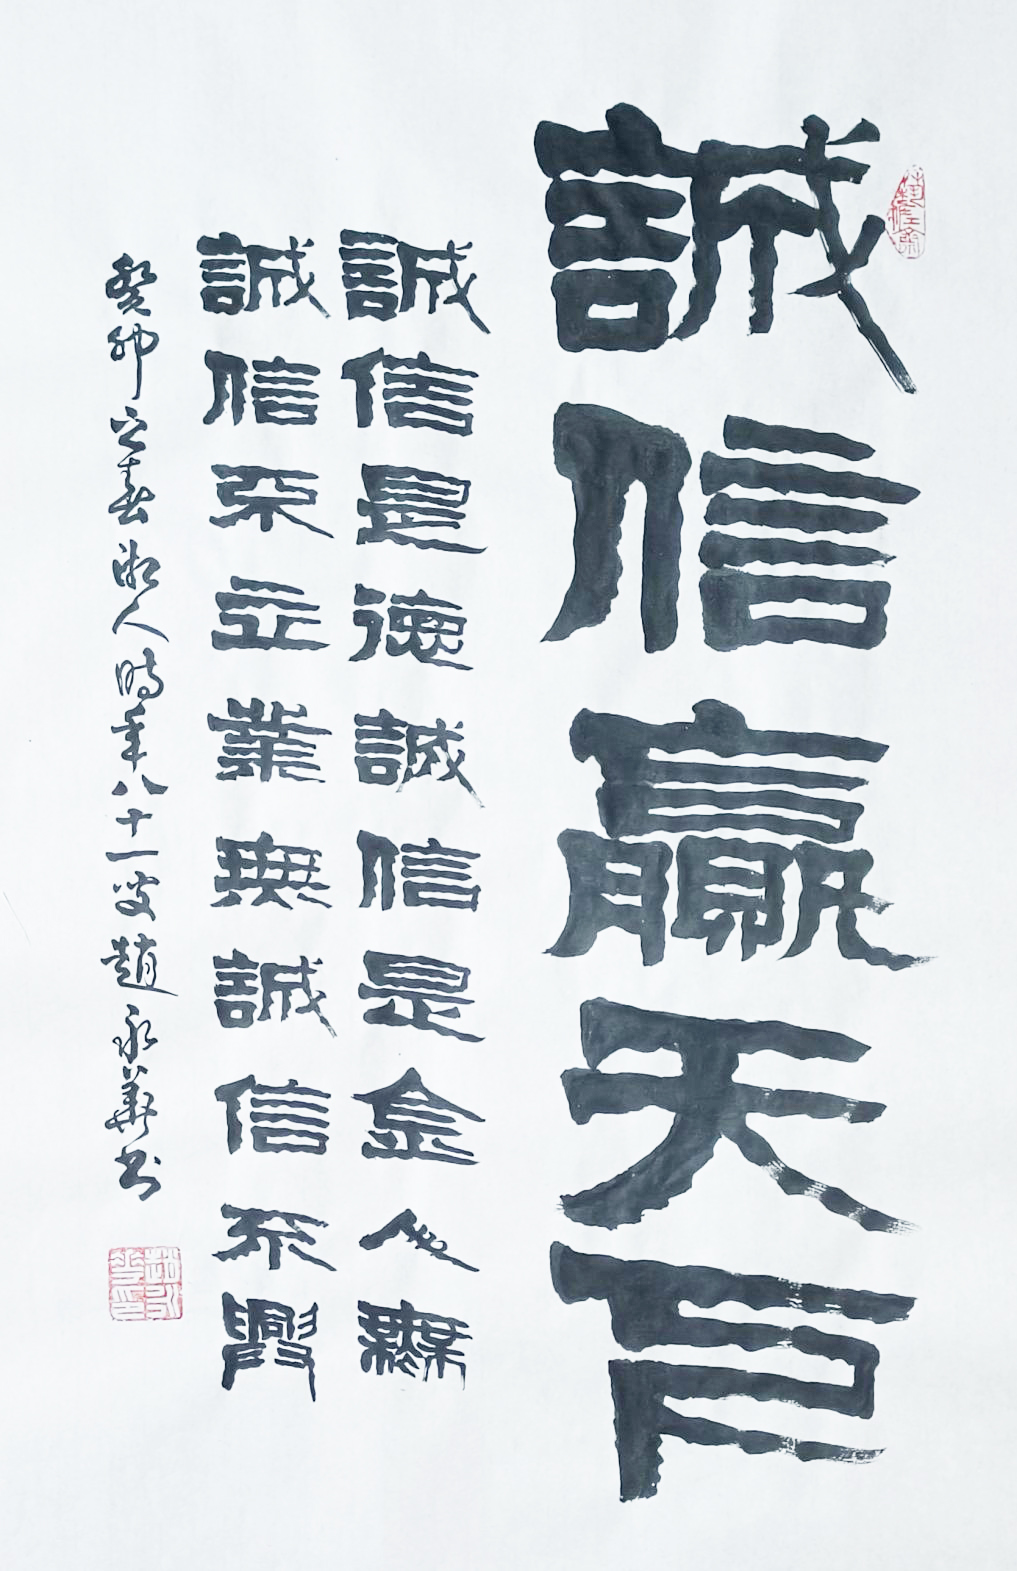 誠信贏天下
誠信是德誠信是金人無
誠信不立業無誠信不興
癸卯之春湘人時年八十一叟趙永華书
趙永華印